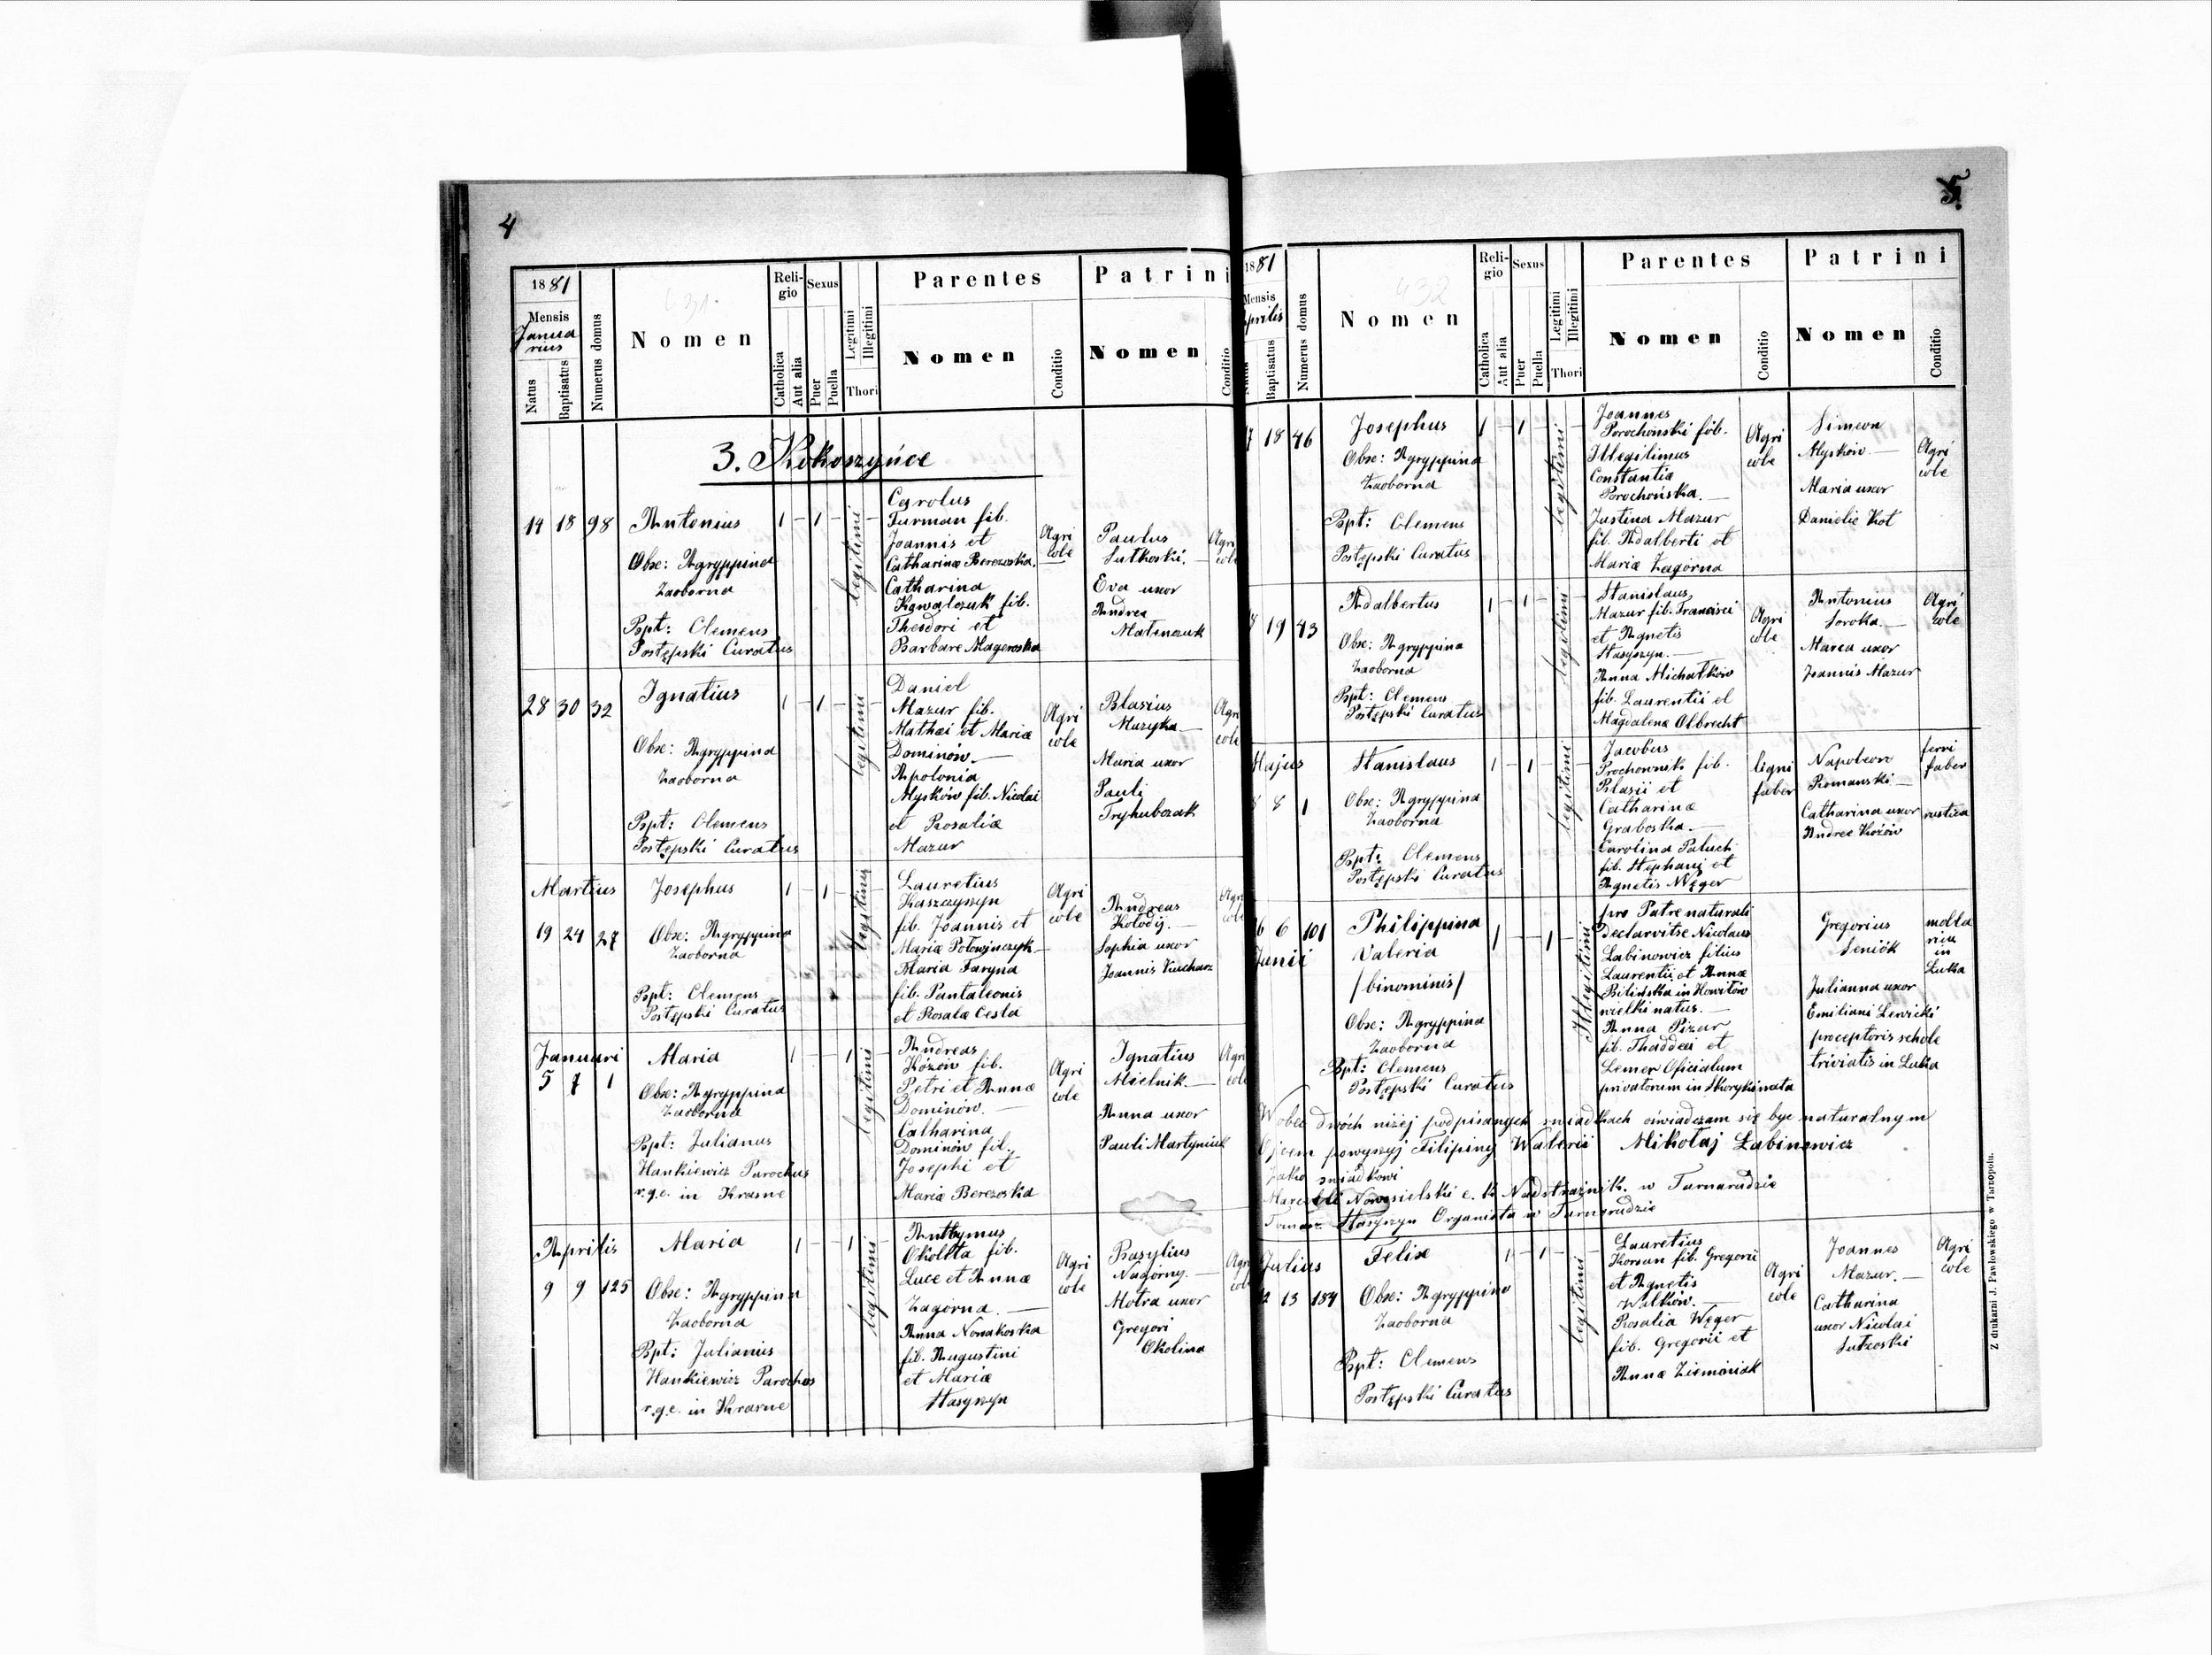 4
1881
Mensis
Janua
rius
Natus
Baptisatus
Numerus domus
Nomen
Reli-
gio
Catholica
Aut alia
Sexus
Puer
Puella
Legitimi
Illegitimi
Thori
Parentes
Nomen
Conditio
Patrini
Nomen
Conditio
3. Kokoszyńce
14 18 98
Antonius
Obse: Agryppina
Zaoborna
Bpt: Clemens
Postępski Curatus
1 - 1 -
legitimi
Carolus
Furman fil.
Joannis et
Catharinæ Berezoska.
Catharina
Kowalczuk fil.
Theodori et
Barbare Mageroska
Agri
cole
Paulus
Sutkoski.
Eva uxor
Andrea
Matinczuk
28 30 32
Ignatius
Obse: Agryppina
Zaoborna
Bpt: Clemens
Postępski Curatus
1 - 1 -
legitimi
Daniel
Mazur fil.
Mathæi et Mariæ
Dominów.
Apolonia
Myśków fil. Nicolai
et Rosaliæ
Mazur
Agri
cole
Blasius
Muzyka
Maria uxor
Pauli
Tryhubczak
Martius
19 24 27
Josephus
Obse: Agryppina
Zaoborna
Bpt: Clemens
Postępski Curatus
1 - 1 -
legitimi
Lauretius
fil. Joannis et
Maria Faryna
fil. Pantaleonis
et Rosalæ Cesla
Agri
cole
Andreas
Kołodij.
Sophia uxor
Joannis Kucharz
Januari
5 7 1
Maria
Obse: Agryppina
Zaoborna
Bpt: Julianus
Hankiewicz Parochus
r.g.c. in Krasne
1 - - 1
legitimi
Andreas
Kózów fil.
Petri et Annæ
Dominów.
Catharina
Dominów fil.
Josephi et
Mariæ Berezoska
Agri
cole
Ignatius
Mielnik
Anna uxor
Pauli Martyniuk
Aprilis
9 9 125
Maria
Obse: Agryppina
Zaoborna
Bpt: Julianus
Hankiewicz Parochos
r.g.c. in Krasne
1 - - 1
legitimi
Anthymus
fil.
Luce et Annæ
Zagórna.
Anna Nowakoska
fil. Augustini
et Mariæ
Hasyszyn
Agri
cole
Basylius
Nagórny.
Motra uxor
Gregori
Okolina
5.
1881
Mensis
Aprilis
Baptisatus
Numerus domus
Nomen
Reli-
gio
Catholica
Aut alia
Sexus
Puer
Puella
Legitimi
Illegitimi
Thori
Parentes
Nomen
Conditio
Patrini
Nomen
Conditio
7 18 46
Josephus
Obse: Agryppina
Zaoborna
Bpt: Clemens
Postępski Curatus
1 - 1 -
legitimi
Joannes
Porochonski fil.
Illegitimus
Constantia
Porochońska.
Justina Mazur
fil. Adalberti et
Mariæ Zagórna
Agri
cole
Simeon
Myśków
Maria uxor
Danielis Kot
Agri
cole
8 19 43
Adalbertus
Obse: Agryppina
Zaoborna
Bpt: Clemens
Postępski Curatus
1 - 1 -
legitimi
Stanislaus
Mazur fil. Francisci
et Agnetis
Hasyszyn.
Anna Michałków
fil. Laurentii et
Magdalenæ Olbrecht
Agri
cole
Antonius
Soroka.
Maria uxor
Joannis Mazur
Agri
cole
Majus
8 8 1
Stanislaus
Obse: Agryppina
Zaoborna
Bpt: Clemens
Postępski Curatus
1 - 1 -
legitimi
Jacobus
Prochownik fil.
Blasii et
Catharinæ
Graboska.
Carolina Paluch
fil. Stephani et
Agnetis Węger
ligni
faber
Napoleon
Romanski
Catharina uxor
Andree Kózów
ferri
faber
rustica
6 6 101
Junii
Philippina
Valeria
/binominis/
Obse: Agryppina
Zaoborna
Bpt: Clemens
Postępski Curatus
1 - - 1
Illegitimi
pro Patre naturali
declarvitse Nicolaus
Łabinowicz filius
Laurentii et Annæ
Bilińska in Howiłów
wielki natus.
Anna Pizar
fil. Thaddei et
Lemer Oficialum
privatorum in
Gregorius
Seniók
Julianna uxor
Emiliani Lewicki
præceptoris schole
trivialis in Łuka
in
Łuka
Wobec dwóch niżej podpisanych swiadkach oświadczam się byc naturalnym
Ojcem powyszyj Filipiny Walerii Mikołaj Łabinowicz
Jako swiadkowi
Nowosielski c. k. Nadstraznik w Tarnorudzie
Tomasz Hasyszyn Organista w Tarnorudzie
Julius
12 13 184
Felix
Obse: Agryppina
Zaoborna
Bpt: Clemens
Postępski Curatus
1 - 1 -
legitimi
Lauretius
Korsan fil. Gregorii
et Agnetis
Walków.
Rosalia Węger
fil. Gregorii et
Annæ Ziemniak
Agri
cole
Joannes
Mazur.
Catharina
uxor Nicolai
Sutkoski
Agri
cole
Z drukarni J. Pawłowskiego w Tarnopolu.